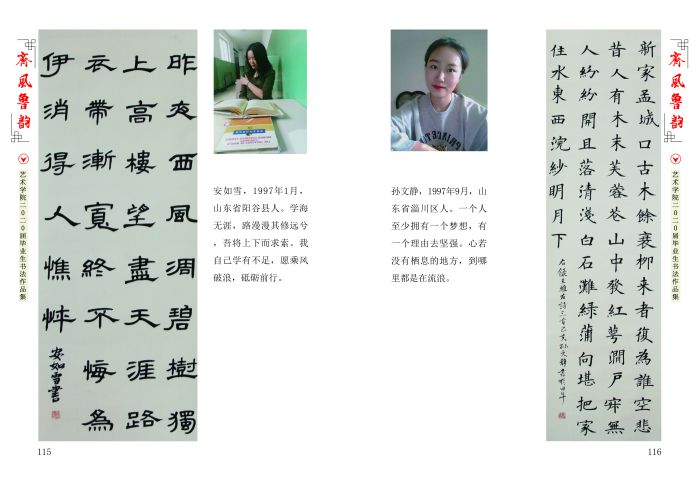 齊風魯韵
艺术学院二〇二〇届毕业生书法作品集
昨夜西風凋碧樹獨
上高樓望盡天涯路
衣帶漸寬終不悔為
伊消得人憔悴
安如雪書
安如雪，1997年1月，
山东省阳谷县人。学海
无涯，路漫漫其修远兮
，吾将上下而求索。我
自己学有不足，愿乘风
破浪，砥砺前行。
115
孙文静，1997年9月，山
东省淄川区人。一个人
至少拥有一个梦想，有
一个理由去坚强。心若
没有栖息的地方，到哪
里都是在流浪。
新家孟城口古木餘衰柳来者復為誰空悲
昔人有木末芙蓉花山中發紅萼澗戶寂無
人紛紛開且落清淺白石灘綠蒲向堪把家
住水東西浣紗明月下
右錄王維古詩三首己亥孙文静書於
齊風魯韵
艺术学院二〇二〇届毕业生书法作品集
116